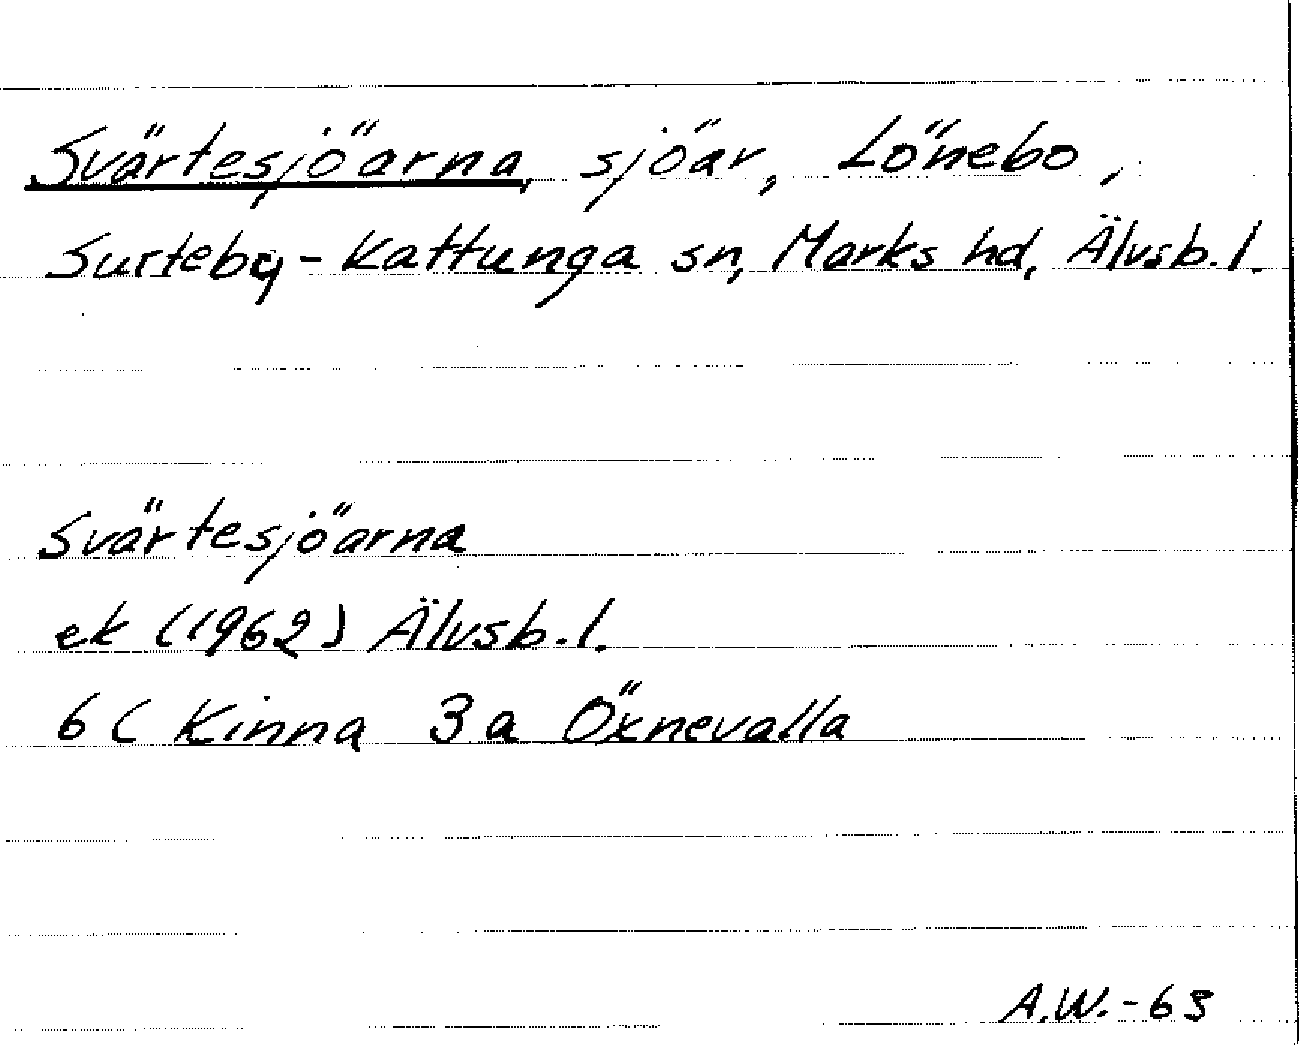 Svärtesjöarna, sjöar, Lönebo,
Surteby-Kattunga sn, Marks hd, Älvsb.l.
Svärtesjöarna
ek (1962) Älvsb.l.
6C Kinna 3a Öxnevalla
A.W.-63